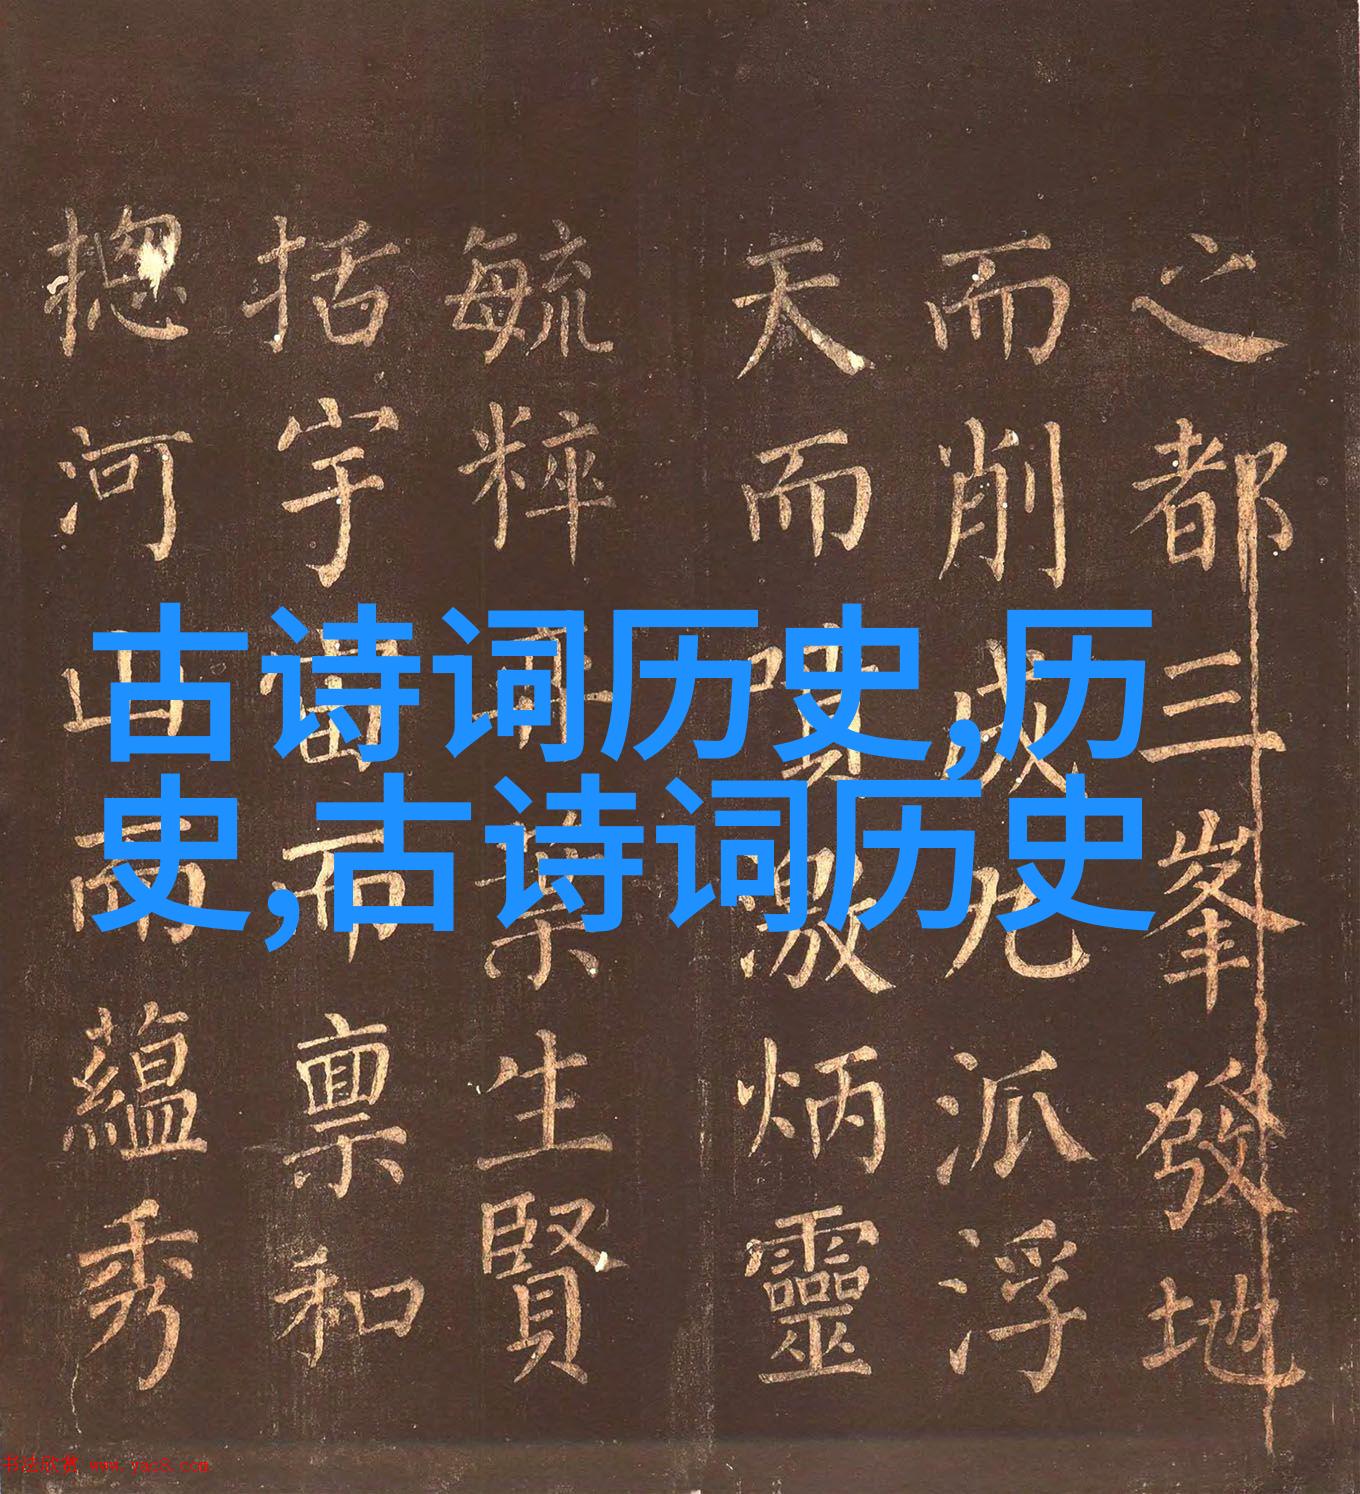 古诗词历史,历
史,古诗词历史
之都三峯發地
而削成九派浮
天而噴激炳靈
毓粹葉生賢
括宇宙而禀和
揔河山而蘊秀
书法欣赏 www.yac8.com